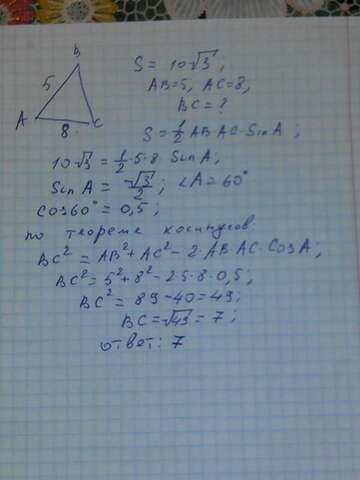 B
5
A
8
C
S = 10√3 ;
AB=5, AC=8,
BC = ?
S = 1/2 AB·AC·Sin A ;
10√3 = 1/2·5·8·Sin A,
Sin A = √3/2 ; ∠A = 60°
cos60° = 0,5 ;
по теореме косинусов:
BC² = AB² + AC² - 2·AB·AC·Cos A ;
BC² = 5² + 8² - 2·5·8·0,5 ;
BC² = 89 - 40 = 49 ;
BC = √49 = 7 ;
ответ: 7